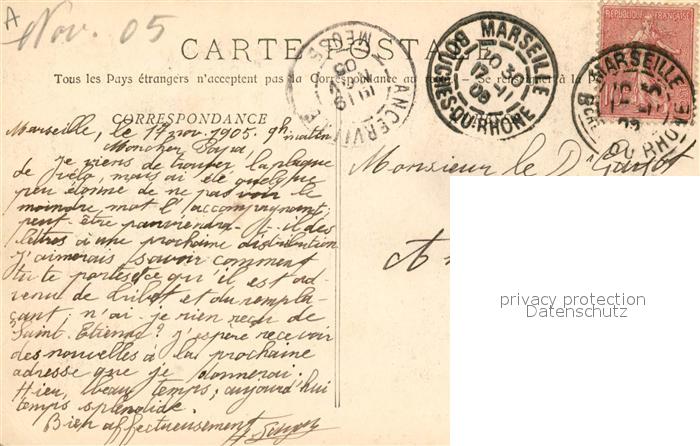 A
Nov. 05
CARTE POSTALE
Tous les Pays étrangers n'acceptent pas la Correspondance au
CORRESPONDANCE
Marseille, le 17 nov. 1905. 9h matin
Mon cher Papa,
je viens de trouver la plaque
de vélo, mais ai été quelque
peu étonné de ne pas voir le
moindre mot l'accompagnant;
peut-être parviendra-t-il des
lettres à une prochaine distribution
J'aimerais savoir comment
tu te portes et ce qu'il est ad-
venu de et du rempla-
çant; n'ai-je rien reçu de
Saint-Etienne? J'espère recevoir
des nouvelles à la prochaine
adresse que je donnerai.
Hier, beau temps; aujourd'hui
temps splendide.
Bien affectueusement
ANCERVILLE
MEUSE
05
MARSEILLE
BOUCHES-DU-RHONE
REPUBLIQUE FRANCAISE
MARSEILLE
DU RHONE
Monsieur le D
privacy protection
Datenschutz